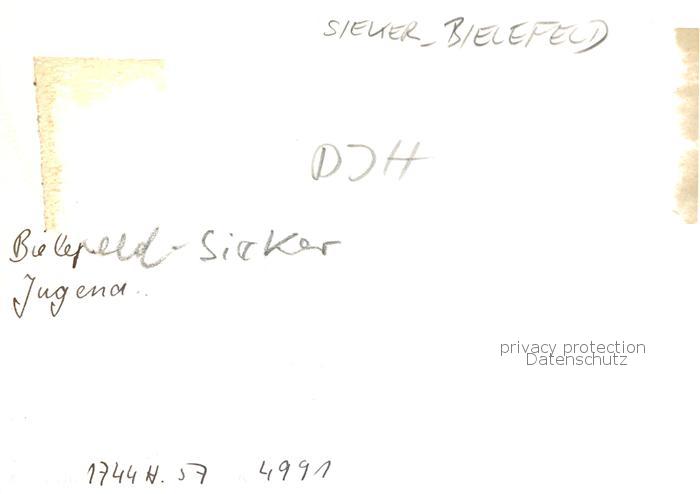 SIEKER-BIELEFELD
DJH
Bielefeld-Sieker
Jugend..
privacy protection
Datenschutz
1744 H. 57 4991